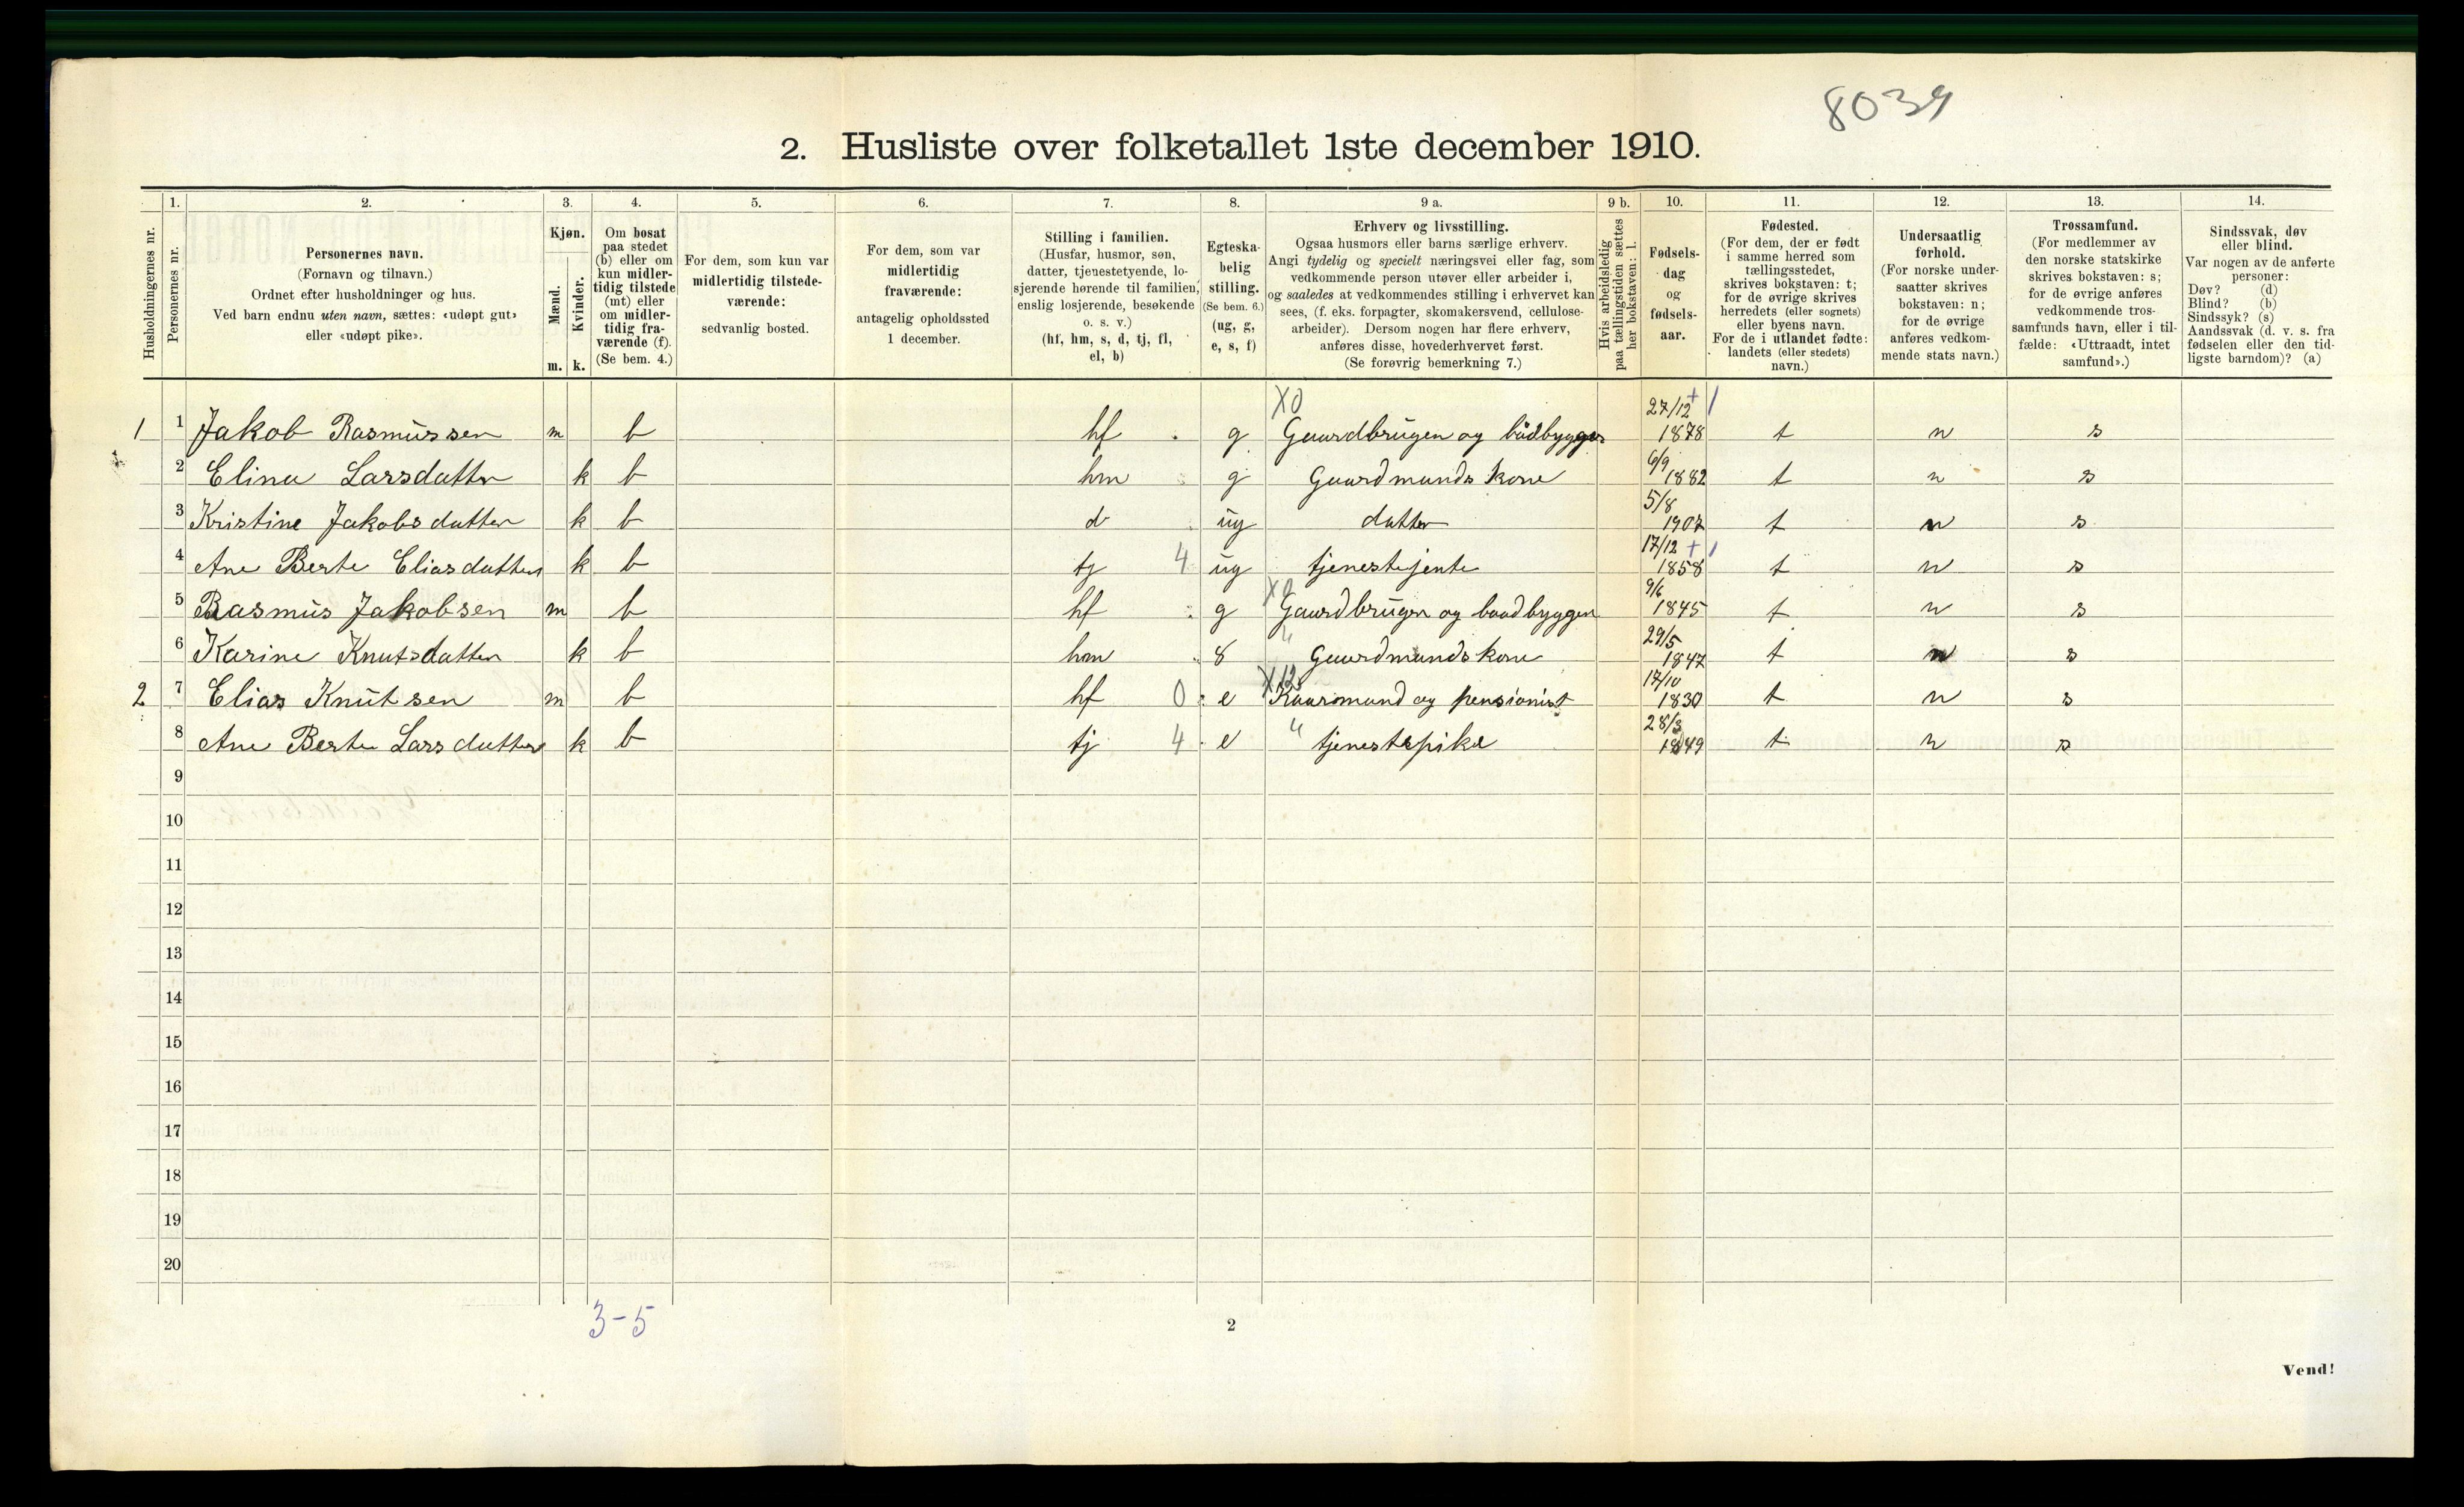 8039
2. Husliste over folketallet 1ste december 1910.
Husholdningernes nr.
1.
Personernes nr.
2.
Personernes navn.
(Fornavn og tilnavn.)
Ordnet efter husholdninger og hus.
Ved barn endnu uten navn, sættes: «udøpt gut»
eller «udøpt pike».
3.
Kjøn.
Mænd.
Kvinder.
m.
k.
4.
Om bosat
paa stedet
(b) eller om
kun midler-
tidig tilstede
(mt) eller
om midler-
tidig fra-
værende (f).
(Se bem. 4.)
5.
For dem, som kun var
midlertidig tilstede-
værende:
sedvanlig bosted.
6.
For dem, som var
midlertidig
fraværende:
antagelig opholdssted
1 december.
7.
Stilling i familien.
(Husfar, husmor, søn,
datter, tjenestetyende, lo-
sjerende hørende til familien,
enslig losjerende, besøkende
o. s. v.)
(hf, hm, s, d, tj, fl,
el, b)
8.
Egteska-
belig
stilling.
(Se bem. 6.)
(ug, g,
e, s, f)
9 a.
Erhverv og livsstilling.
Ogsaa husmors eller barns særlige erhverv.
Angi tydelig og specielt næringsvei eller fag, som
vedkommende person utøver eller arbeider i,
og saaledes at vedkommendes stilling i erhvervet kan
sees, (f. eks. forpagter, skomakersvend, cellulose-
arbeider). Dersom nogen har flere erhverv,
anføres disse, hovederhvervet først.
(Se forøvrig bemerkning 7.)
9 b.
Hvis arbeidsledig
paa tællingstiden sættes
her bokstaven: l.
10.
Fødsels-
dag
og
fødsels-
aar.
11.
Fødested.
(For dem, der er født
i samme herred som
tællingsstedet,
skrives bokstaven: t;
for de øvrige skrives
herredets (eller sognets)
eller byens navn.
For de i utlandet fødte:
landets (eller stedets)
navn.)
12.
Undersaatlig
forhold.
(For norske under-
saatter skrives
bokstaven: n;
for de øvrige
anføres vedkom-
mende stats navn.)
13.
Trossamfund.
(For medlemmer av
den norske statskirke
skrives bokstaven: s;
for de øvrige anføres
vedkommende tros-
samfunds navn, eller i til-
fælde: «Uttraadt, intet
samfund».)
14.
Sindssvak, døv
eller blind.
Var nogen av de anførte
personer:
Døv? (d)
Blind? (b)
Sindssyk? (s)
Aandssvak (d. v. s. fra
fødselen eller den tid-
ligste barndom)? (a)
X0 27/12 +
1 1 Jakob Rasmussen m b hf g Gaardbruger og bådbygger 1878 t n s
2 Elina Larsdatter k b hm g Gaardmands kone 6/9 1882 t n s
3 Kristine Jakobsdatter k b d ug datter 5/8 1907 t n s
4 Ane Berte Eliasdatter k b tj 4 ug tjenestejente 17/12 + 1858 t n s
5 Rasmus Jakobsen m b hf g X0 Gaardbruger og baadbygger 9/6 1845 t n s
6 Karine Knutsdatter k b hm g " Gaardmandskone 29/5 1847 t n s
2 7 Elias Knutsen m b hf 0 e X12 Kaarmand og pensionist 17/10 1830 t n s
8 Ane Berte Larsdatter k b tj 4 e " tjenestepike 28/3 1849 t n s
9
10
11
12
13
14
15
16
17
18
19
20
3-5
2
Vend!